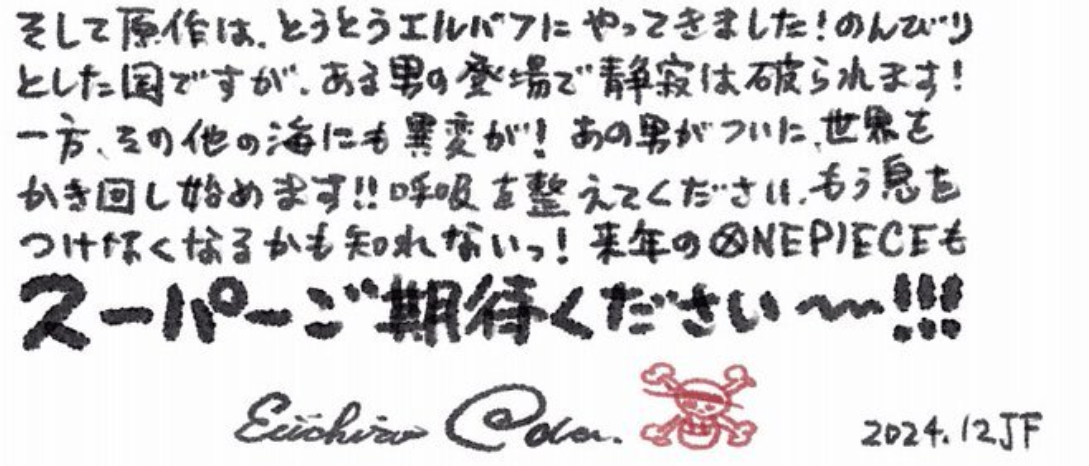 そして原作は、とうとうエルバフにやってきました！のんびり
とした国ですが、ある男の登場で静寂は破られます！
一方、その他の海にも異変が！あの男がついに、世界を
かき回し始めます!!呼吸を整えてください、もう息を
つけなくなるかも知れないっ！来年のONEPIECEも
スーパーご期待ください〜〜!!!
Eiichiro Oda.
2024.12JF